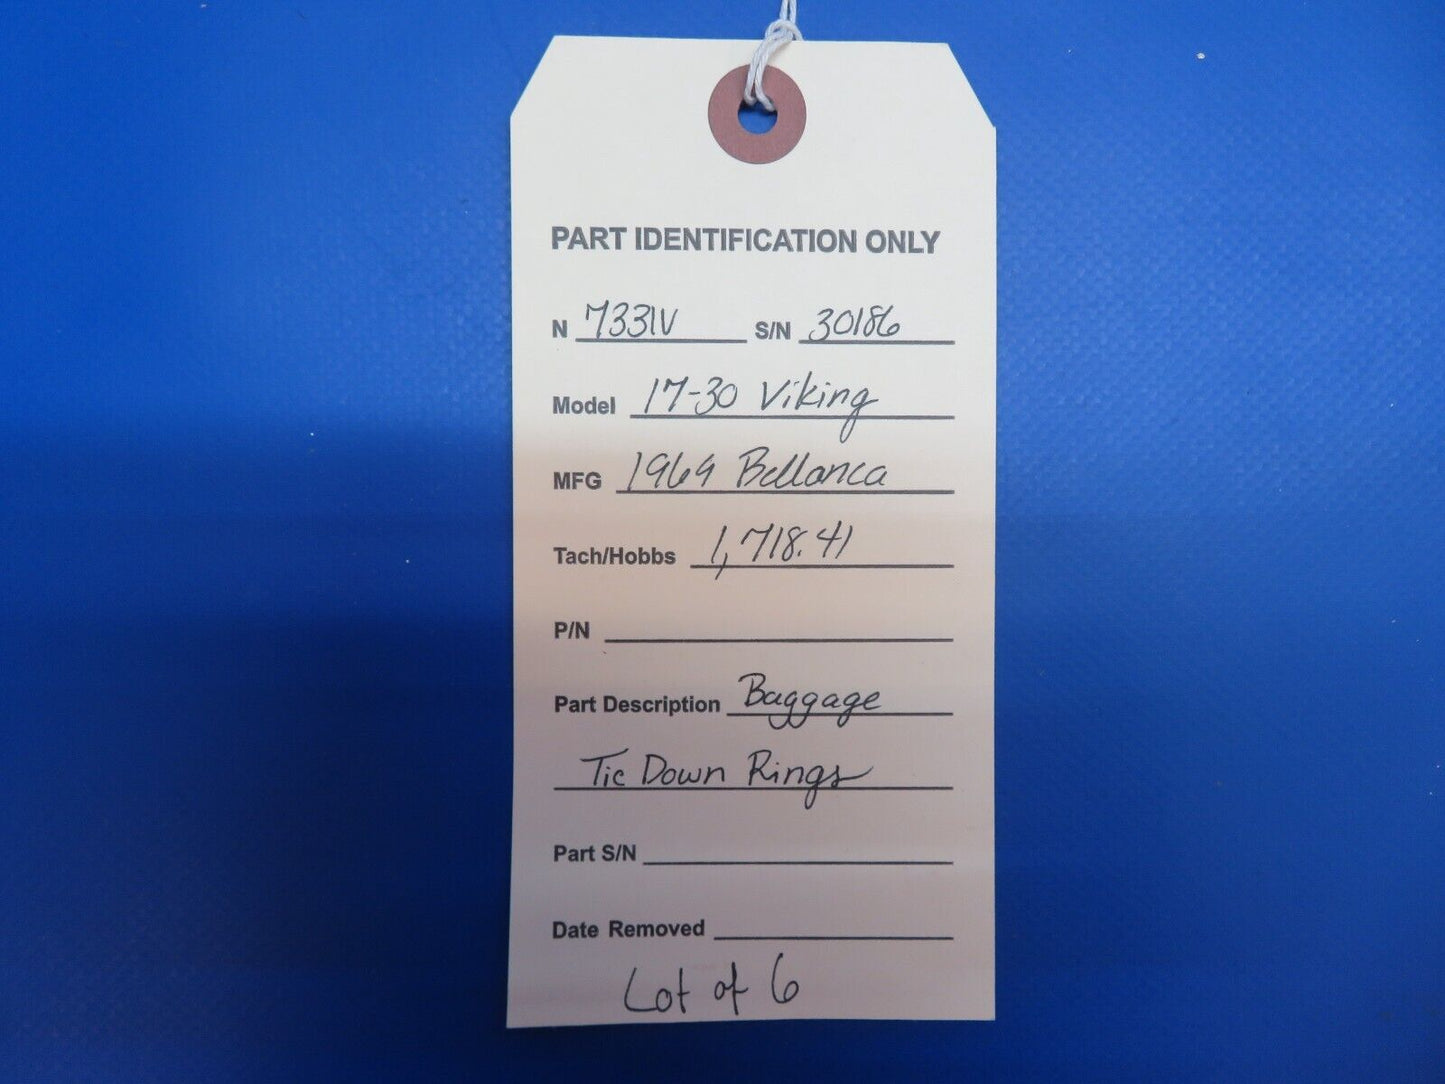 PART IDENTIFICATION ONLY
N 7331V S/N 30186
Model 17-30 Viking
MFG 1969 Bellanca
Tach/Hobbs 1,718.41
P/N
Part Description Baggage
Tie Down Rings
Part S/N
Date Removed
Lot of 6